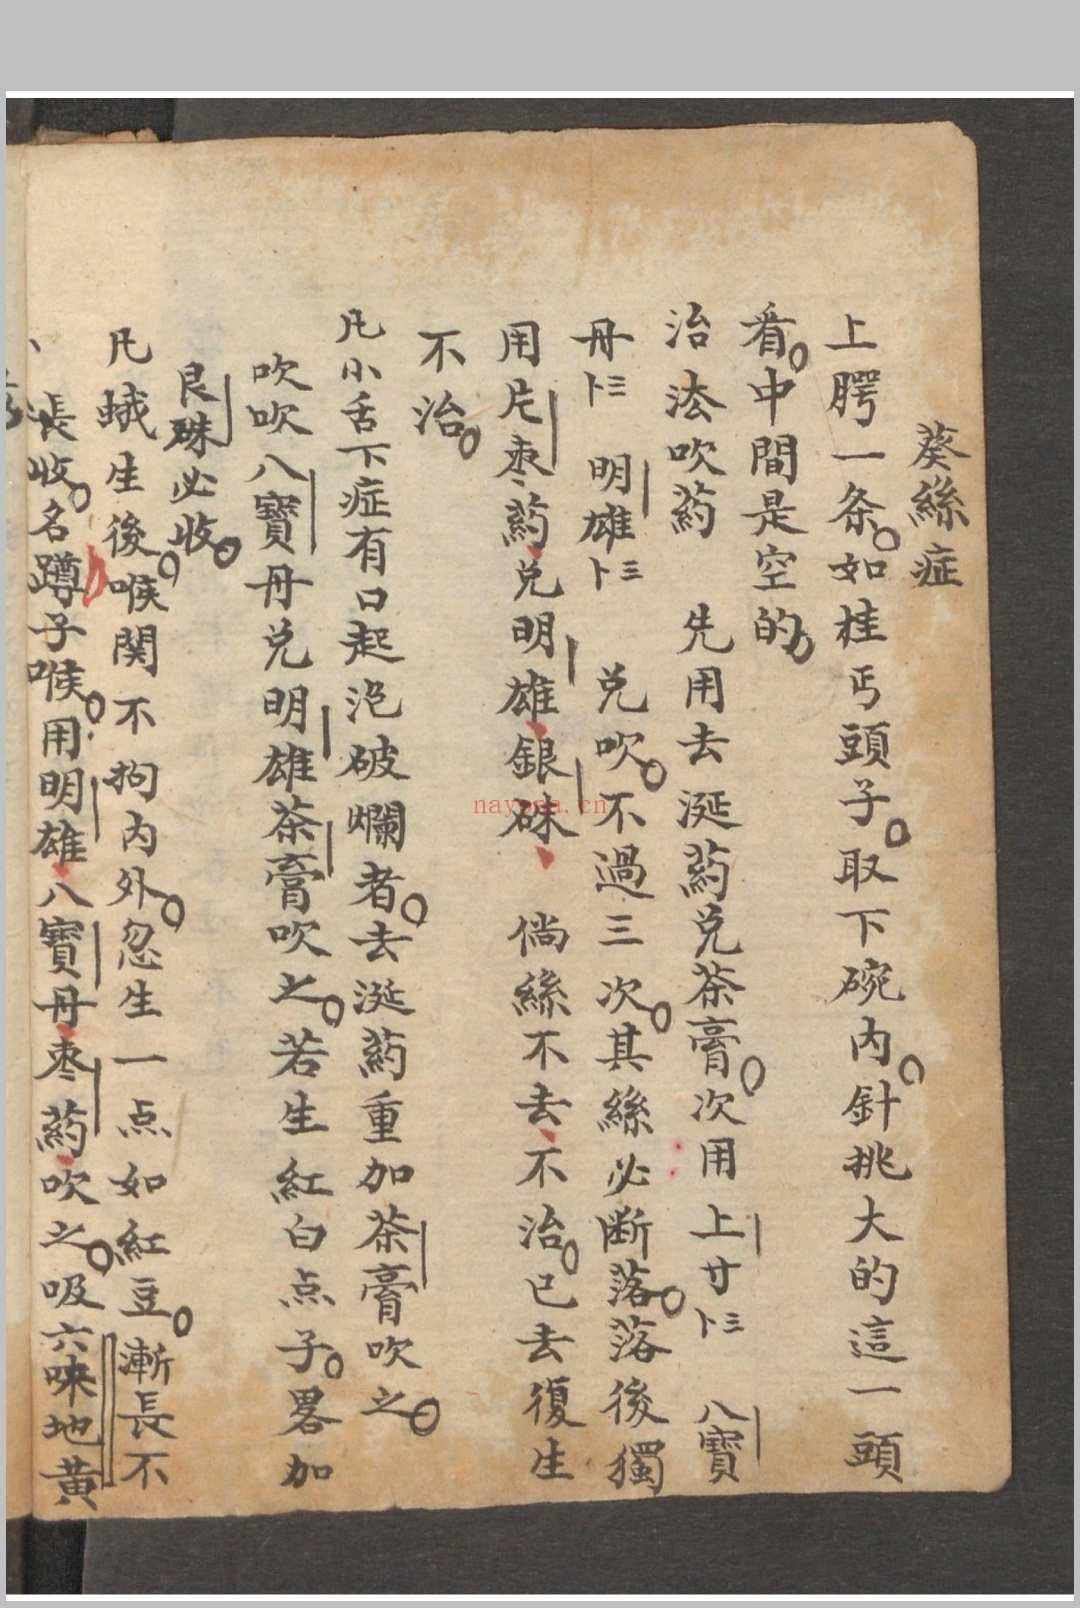 葵絲症
上腭一条。如桂丐頭子。取下碗内。針挑大的這一頭
看。中間是空的。
治法吹药　先用去涎药兑茶膏。次用上甘卜三　八寶
丹卜三　明雄卜三　兑吹。不過三次。其絲必断落。落後獨
用片枣药兑明雄銀硃　倘絲不去不治。已去復生
不治。
凡小舌下症有口起泡破爛者。去涎药重加茶膏吹之。
吹吹八寶丹兑明雄茶膏吹之。若生紅白点子。畧加
艮硃必收。
凡蛾生後。喉関不拘内外。忽生一点如紅豆。漸長不
長收。名蹲子喉。用明雄八寶丹枣药吹之。吸六味地黄
nayona.cn